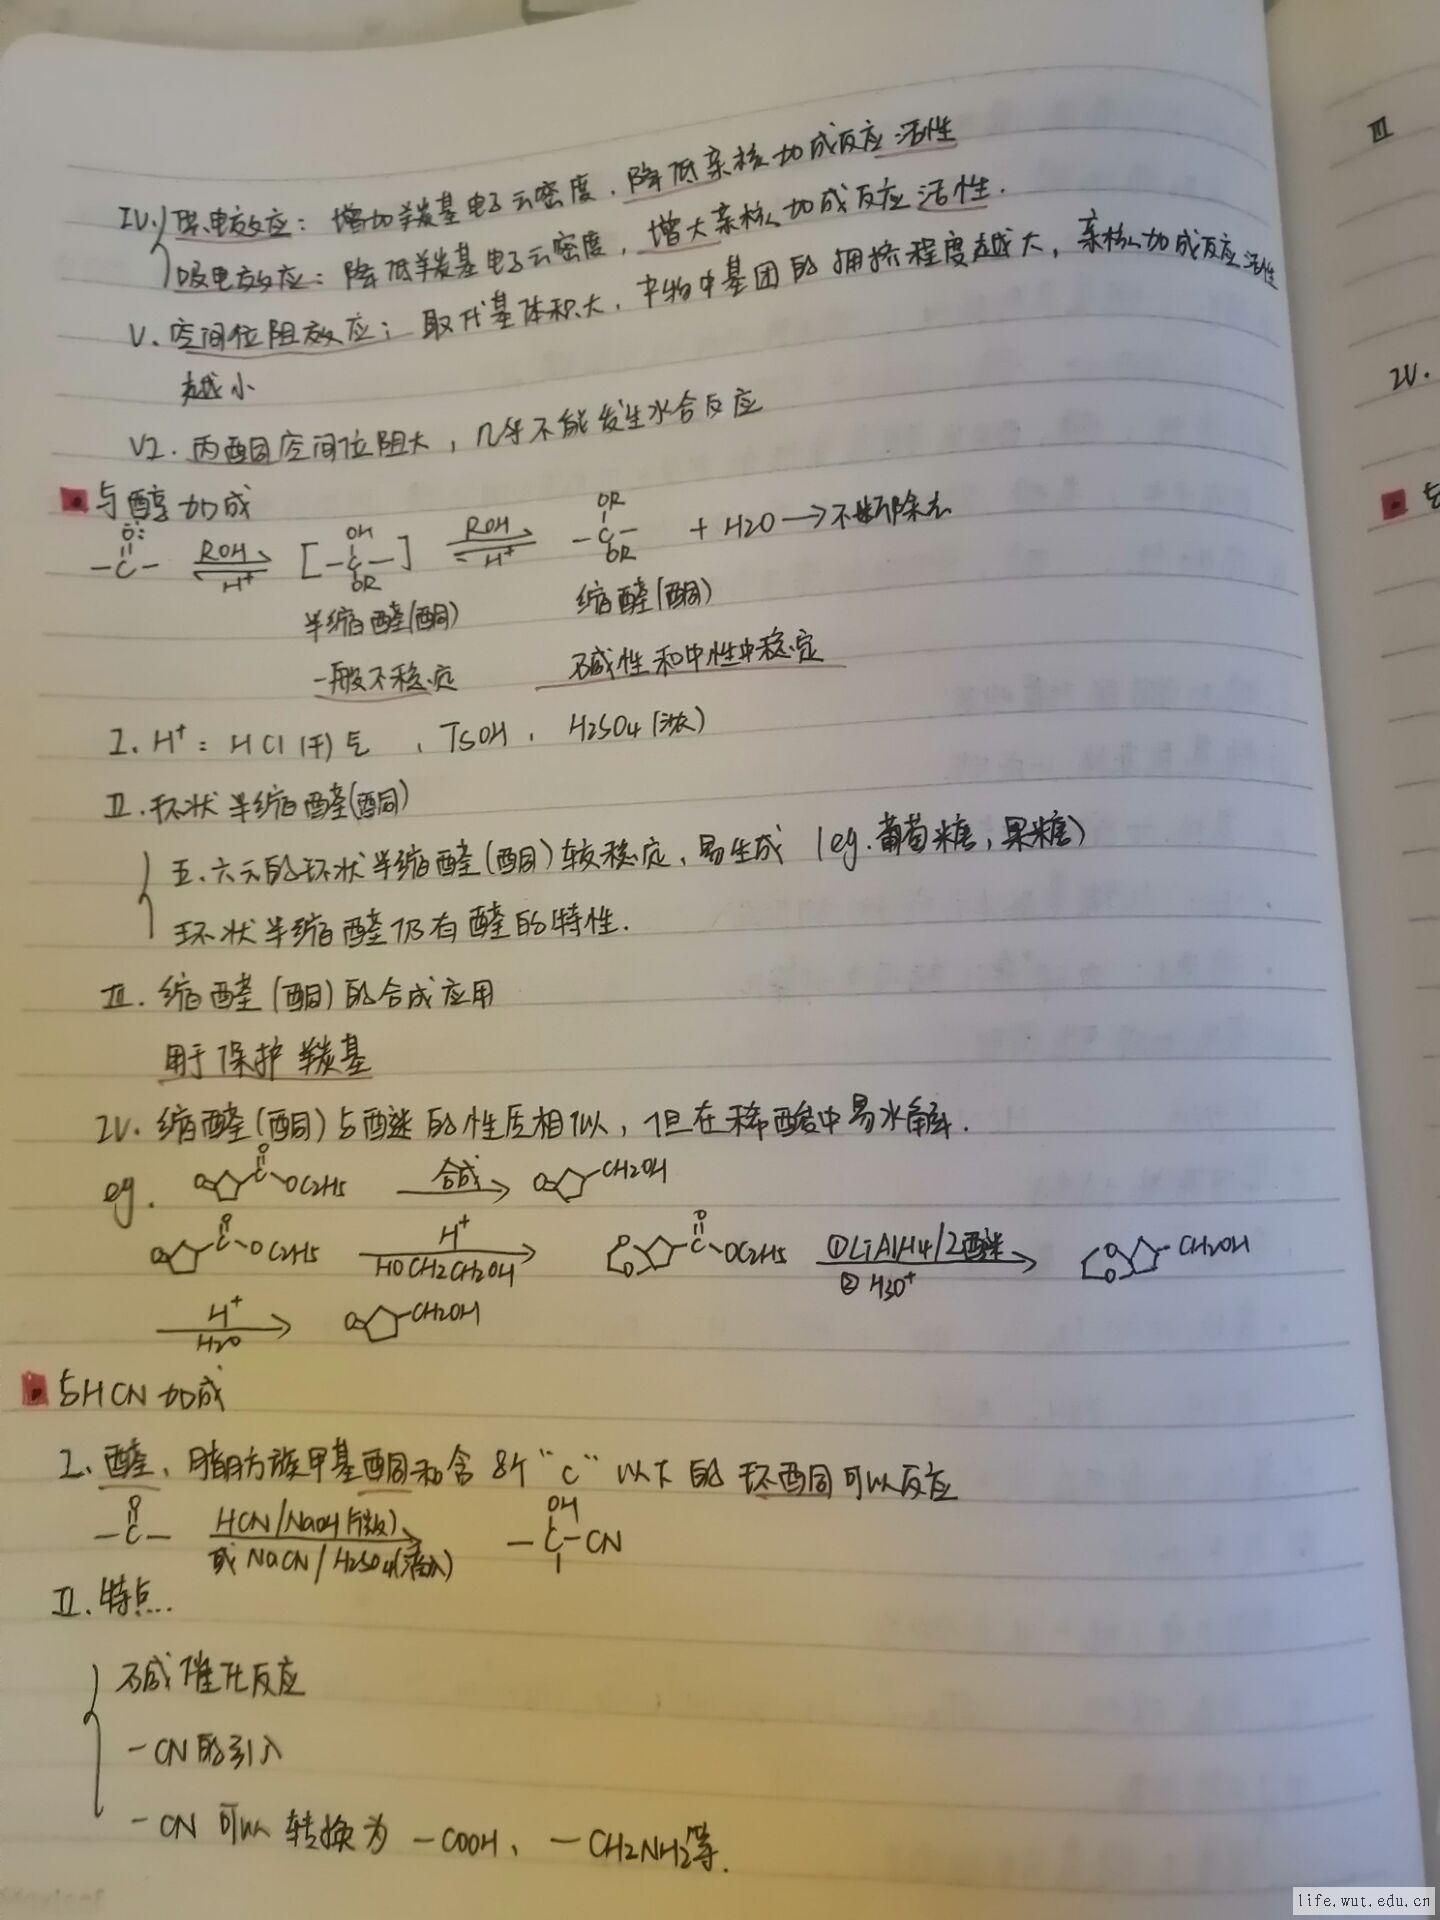 IV. 供电效应：增加羰基电子云密度，降低亲核加成反应活性
吸电效应：降低羰基电子云密度，增大亲核加成反应活性.
V. 空间位阻效应：取代基体积大，中物中基团的拥挤程度越大，亲核加成反应活性
越小
VI. 丙酮空间位阻大，几乎不能发生水合反应
与醇加成
O: OH OR
-C- ROH H+ [-C-] ROH H+ -C- + H2O → 不断除去
OR OR
半缩醛(酮) 缩醛(酮)
一般不稳定 碱性和中性中稳定
I. H+：HCl(干)气，TsOH，H2SO4(浓)
II. 环状半缩醛(酮)
五、六元的环状半缩醛(酮)较稳定，易生成 (eg.葡萄糖，果糖)
环状半缩醛仍有醛的特性.
III. 缩醛(酮)的合成应用
用于保护羰基
IV. 缩醛(酮)与醚的性质相似，但在稀酸中易水解.
eg. O C O OC2H5 合成 O CH2OH
O C O OC2H5 H+ HOCH2CH2OH O O C O OC2H5 ①LiAlH4/乙醚 ②H3O+ O O CH2OH
H+ H2O O CH2OH
与HCN加成
I. 醛、脂肪族甲基酮和含8个“C”以下的环酮可以反应
O OH
-C- HCN/NaOH(微) 或NaCN/H2SO4(滴入) -C-CN
II. 特点...
碱催化反应
-CN的引入
-CN 可以转换为 -COOH、-CH2NH2等.
III
IV.
life.wut.edu.cn